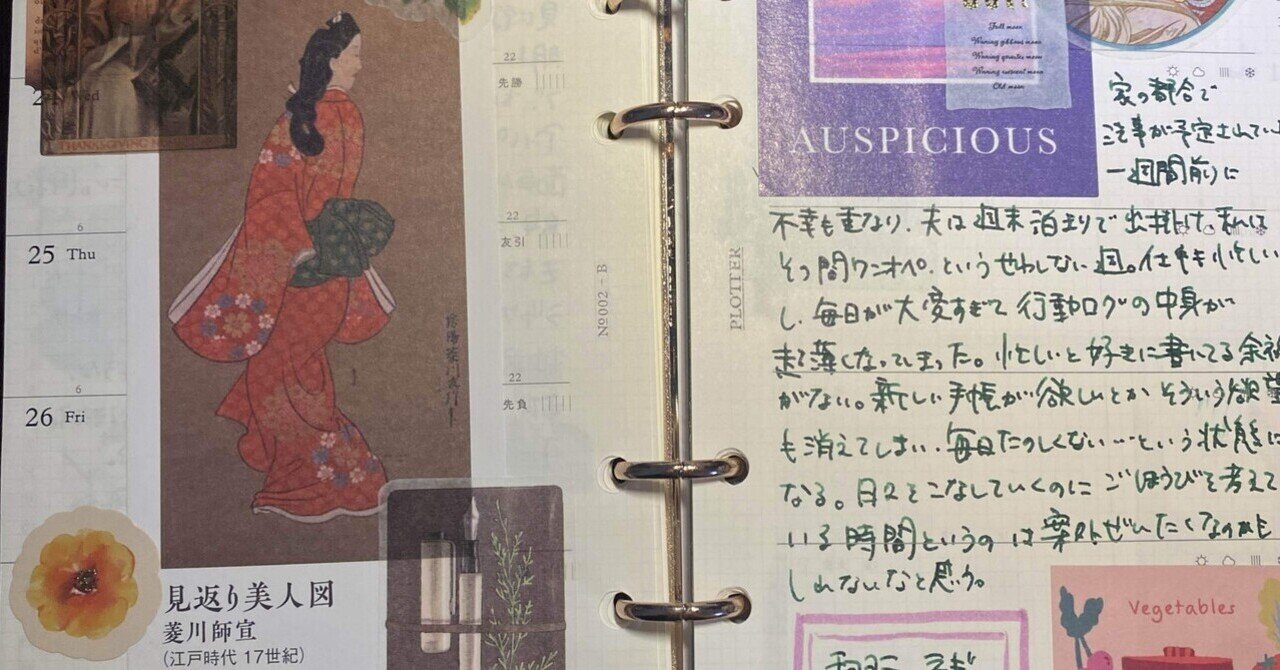 THANKSGIVING
Wed
25 Thu
6
26 Fri
6
見返り美人図
菱川師宣
(江戸時代 17世紀)
22
先勝
22
友引
22
先負
No002-B
PLOTTER
Full moon
Waning gibbous moon
Waning quarter moon
Waning crescent moon
Old moon
AUSPICIOUS
家の都合で
法事が予定されてい
一週間前に
不幸も重なり、夫は週末泊まりで出掛け、まして
その間ワンオペ、というせわしない週。仕事も忙しい
し、毎日が大変すぎて行動ログの中身が
超薄くなってしまった。忙しいと好きに書いてる余裕
がない。新しい手帳が欲しいとかそういう欲望
も消えてしまい、毎日たのしくない…という状態に
なる。日々をこなしていくのにごほうびを考えて
いる時間というのは案外ぜいたくなのかも
しれないなと思う。
Vegetables